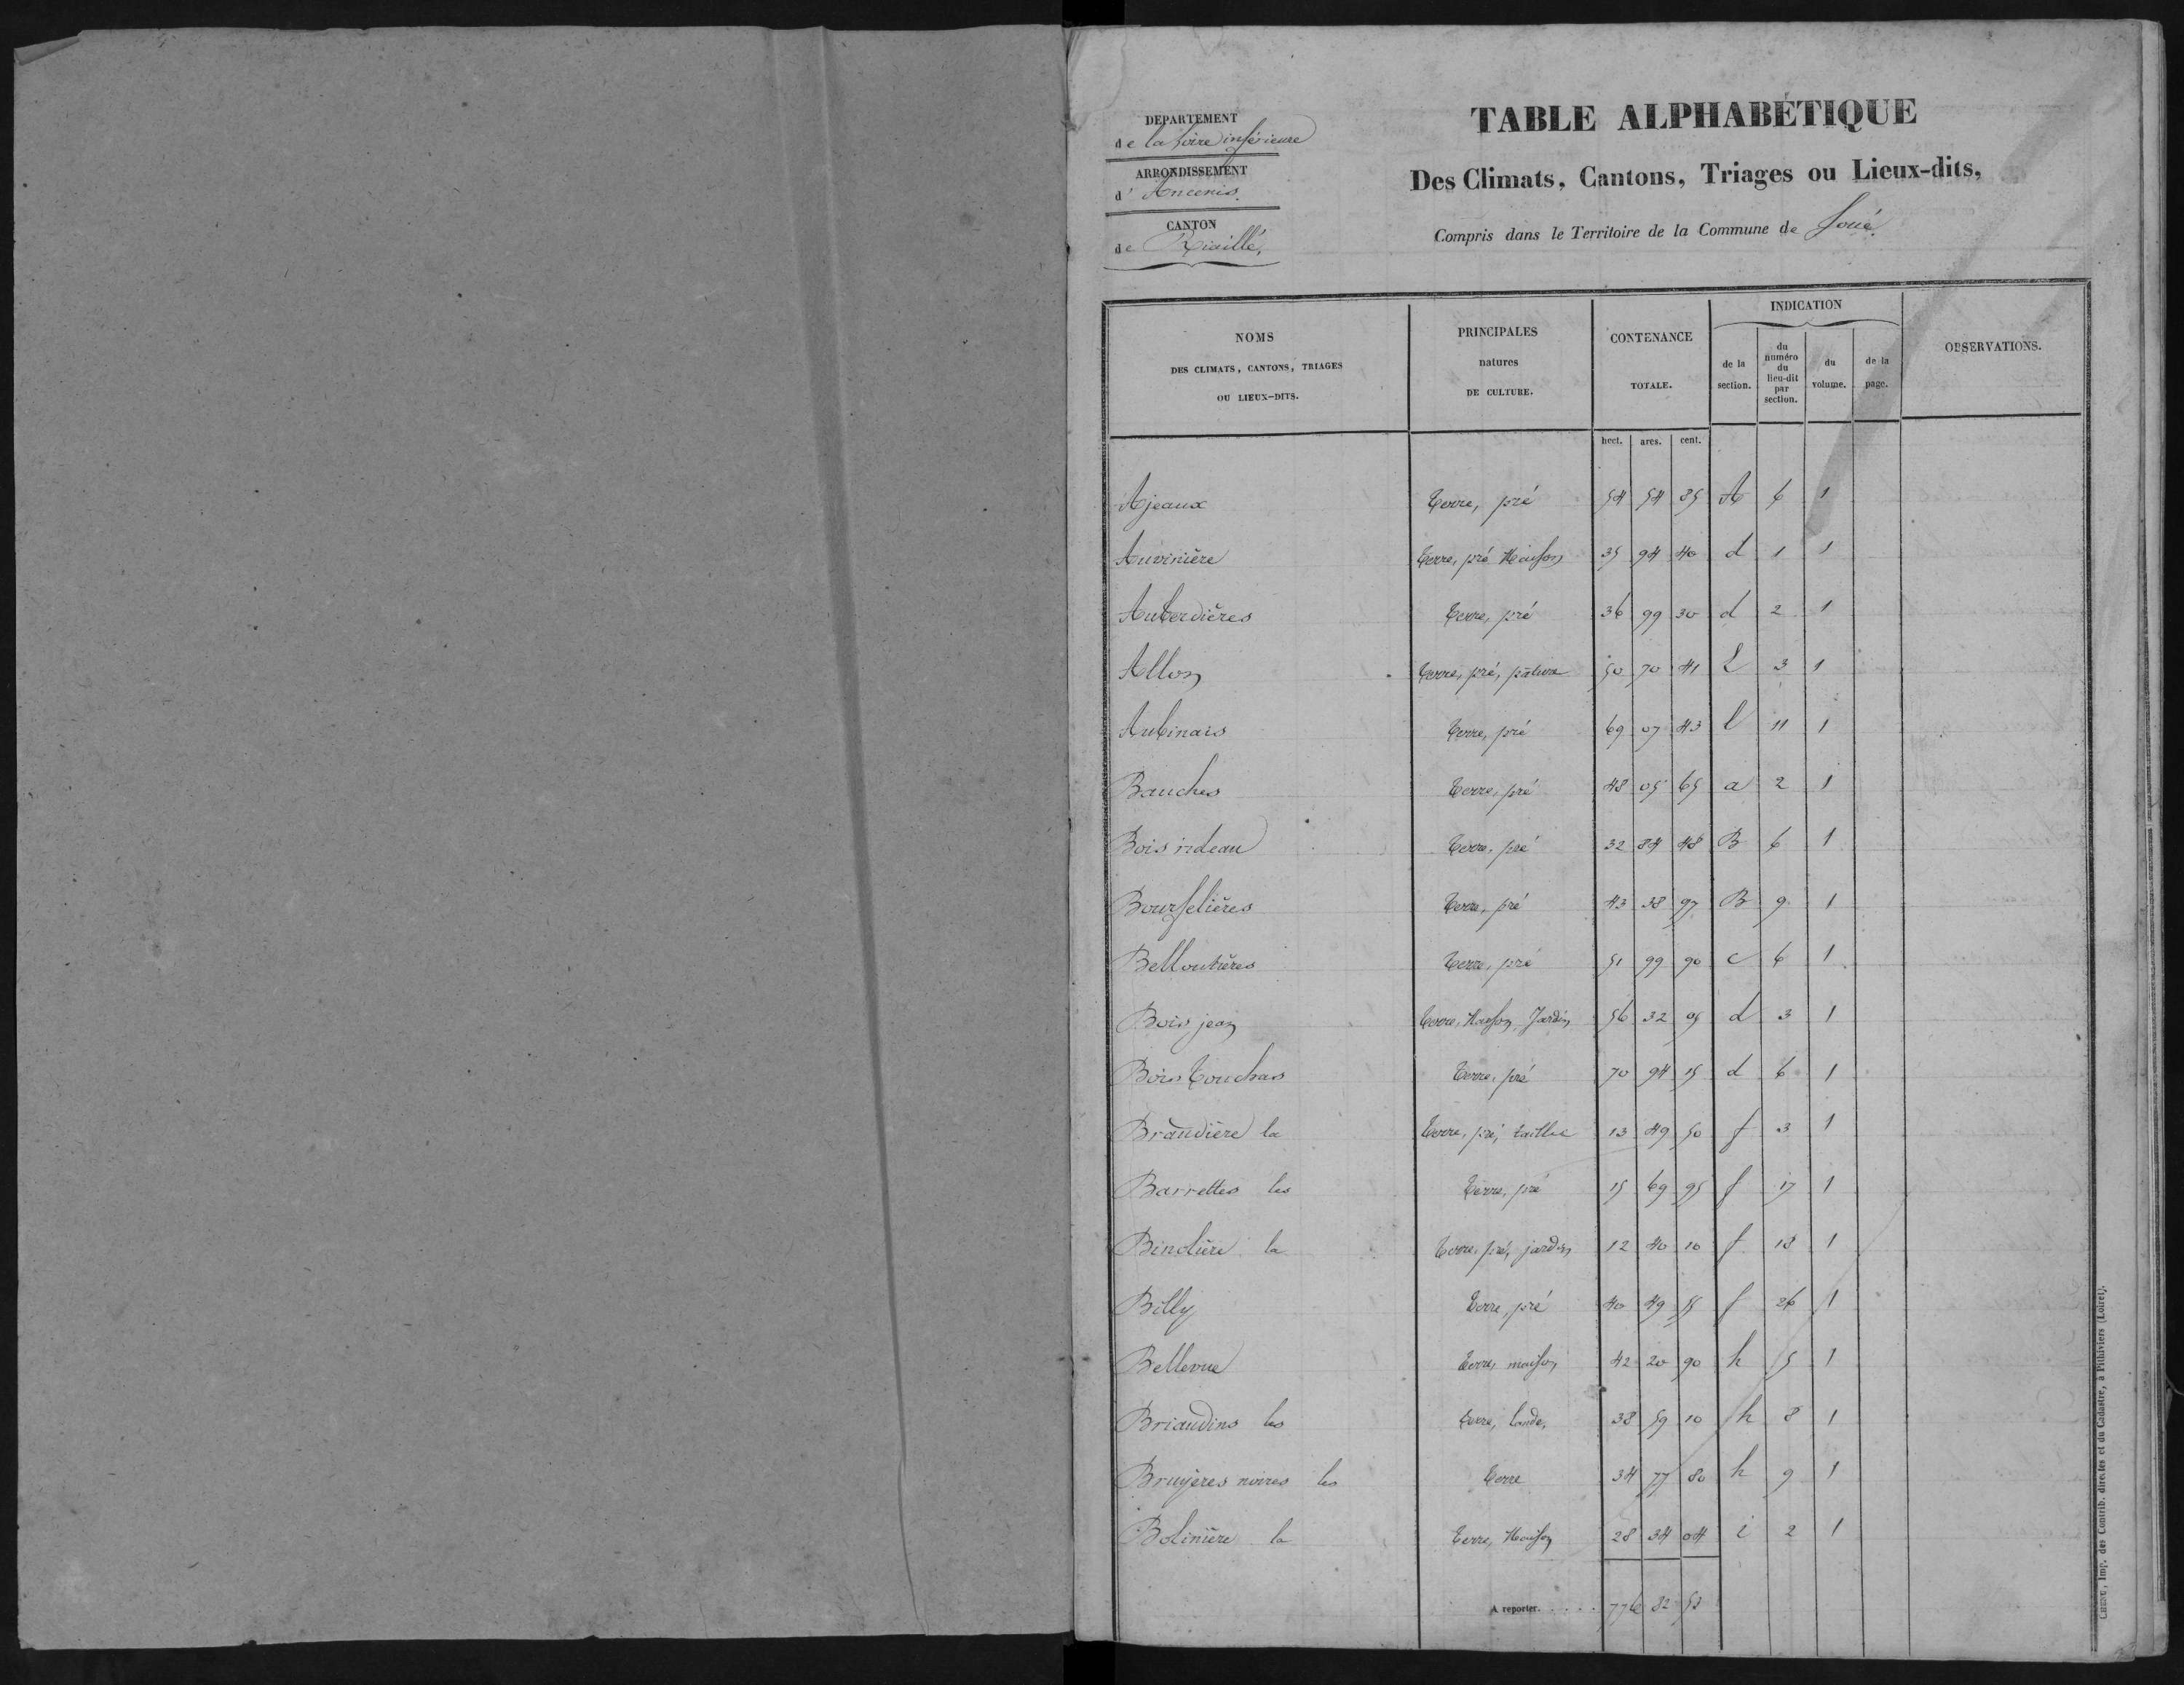 DEPARTEMENT
de la Loire inférieure
ARRONDISSEMENT
d'Ancenis.
CANTON
de Riaillé,
TABLE ALPHABÉTIQUE
Des Climats, Cantons, Triages ou Lieux-dits,
Compris dans le Territoire de la Commune de Joué.
NOMS DES CLIMATS, CANTONS, TRIAGES OU LIEUX-DITS. PRINCIPALES natures DE CULTURE. CONTENANCE TOTALE. INDICATION de la section. du numéro du lieu-dit par section. du volume. de la page. OBSERVATIONS.
hect. ares. cent.
Ajeaux terre, pré 54 54 85 A 6 1
Auvinière terre, pré Maison 35 94 40 d 1 1
Auberdières terre, pré 36 99 30 d 2 1
Allon terre, pré, pâture 50 70 41 L 3 1
Aubinais terre, pré 69 07 43 l 11 1
Bauches terre, pré 48 05 65 a 2 1
Bois rideau terre, pré 32 84 48 B 6 1
Bourselières terre, pré 43 38 97 B 9 1
Belloutières terre, pré 51 99 90 c 6 1
Bois jean terre, Maison, Jardin 56 32 05 d 3 1
Bois Touchas terre, pré 70 94 15 d 6 1
Braudière la terre, pré, taillie 13 49 50 f 3 1
Barrettes les terre, pré 15 69 95 f 17 1
Binctière la terre, pré, jardin 12 40 10 f 13 1
Billy terre, pré 40 49 55 f 26 1
Bellevue terre, maison 42 20 90 h 5 1
Briaudins les terre, lande, 38 59 10 h 8 1
Bruyères noires les terre 34 77 80 h 9 1
Bolinière la terre, Maison 28 34 04 i 2 1
A reporter. . . . . 776 82 53
CHENU, Imp. des Contrib. directes et du Cadastre, à Pithiviers (Loiret).